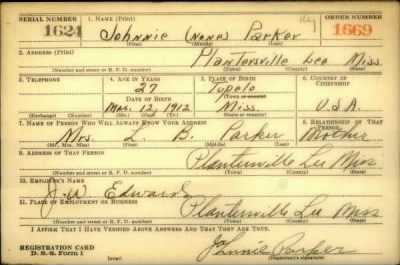 SERIAL NUMBER 1. NAME (Print) ORDER NUMBER
1624 Johnnie (None) Parker 1669
(First) (Middle) (Last)
2. ADDRESS (Print)
Plantersville Lee Miss.
(Number and street or R. F. D. number) (Town) (County) (State)
3. TELEPHONE 4. AGE IN YEARS 5. PLACE OF BIRTH 6. COUNTRY OF CITIZENSHIP
27 Tupelo
DATE OF BIRTH (Town or county)
Mar. 12, 1912 Miss. U.S.A
(Exchange) (Number) (Mo.) (Day) (Yr.) (State or country)
7. NAME OF PERSON WHO WILL ALWAYS KNOW YOUR ADDRESS 8. RELATIONSHIP OF THAT PERSON
Mrs. L. B. Parker Mother
(Mr., Mrs., Miss) (First) (Middle) (Last)
9. ADDRESS OF THAT PERSON
Plantersville Lee Miss
(Number and street or R. F. D. number) (Town) (County) (State)
10. EMPLOYER'S NAME
J. W. Edwards
11. PLACE OF EMPLOYMENT OR BUSINESS
Plantersville Lee Miss
(Number and street or R. F. D. number) (Town) (County) (State)
I AFFIRM THAT I HAVE VERIFIED ABOVE ANSWERS AND THAT THEY ARE TRUE.
REGISTRATION CARD Johnnie Parker
D. S. S. Form 1 (over) (Registrant's signature)